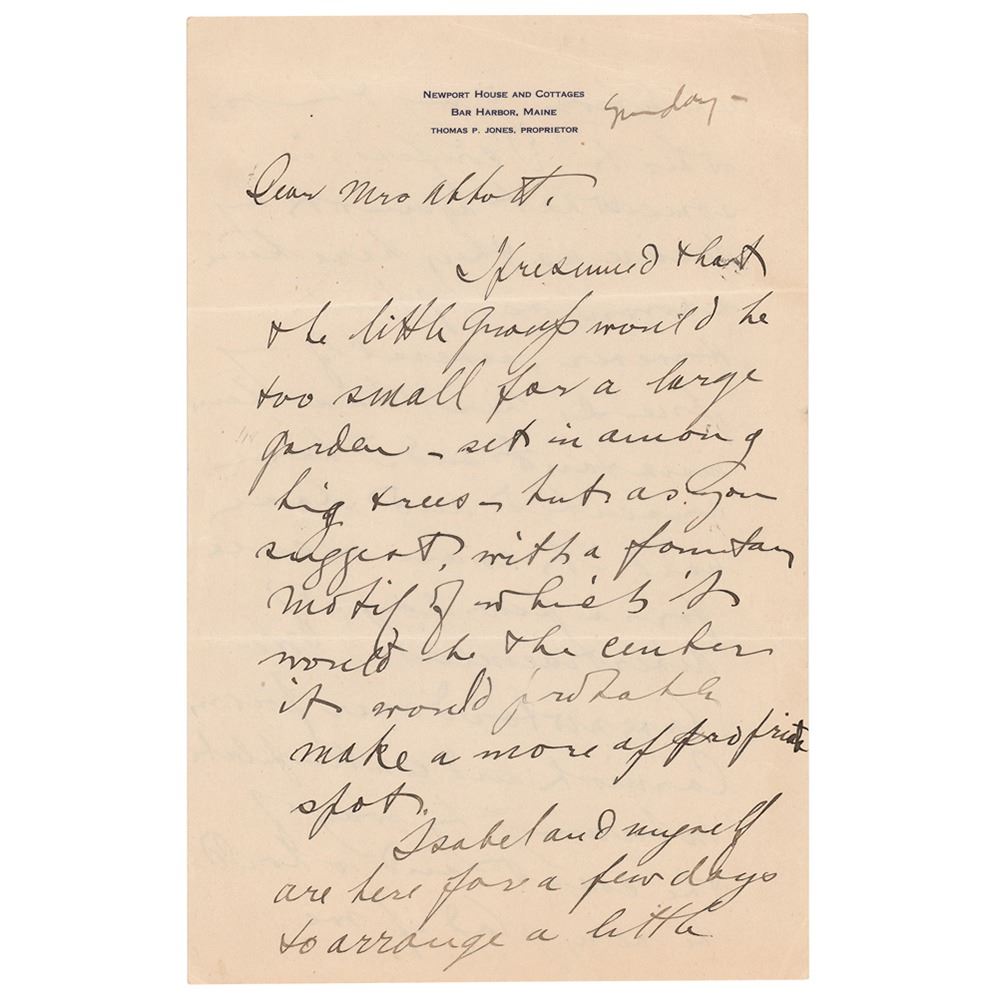 NEWPORT HOUSE AND COTTAGES
BAR HARBOR, MAINE
THOMAS P. JONES, PROPRIETOR
Sunday –
Dear Mrs Abbott,
I presumed that
the little group would be
too small for a large
garden – set in among
big trees – but as you
suggest, with a fountain
motif of which it
would be the center
it would probable
make a more appropriate
spot.
Isabel and myself
are here for a few days
to arrange a little